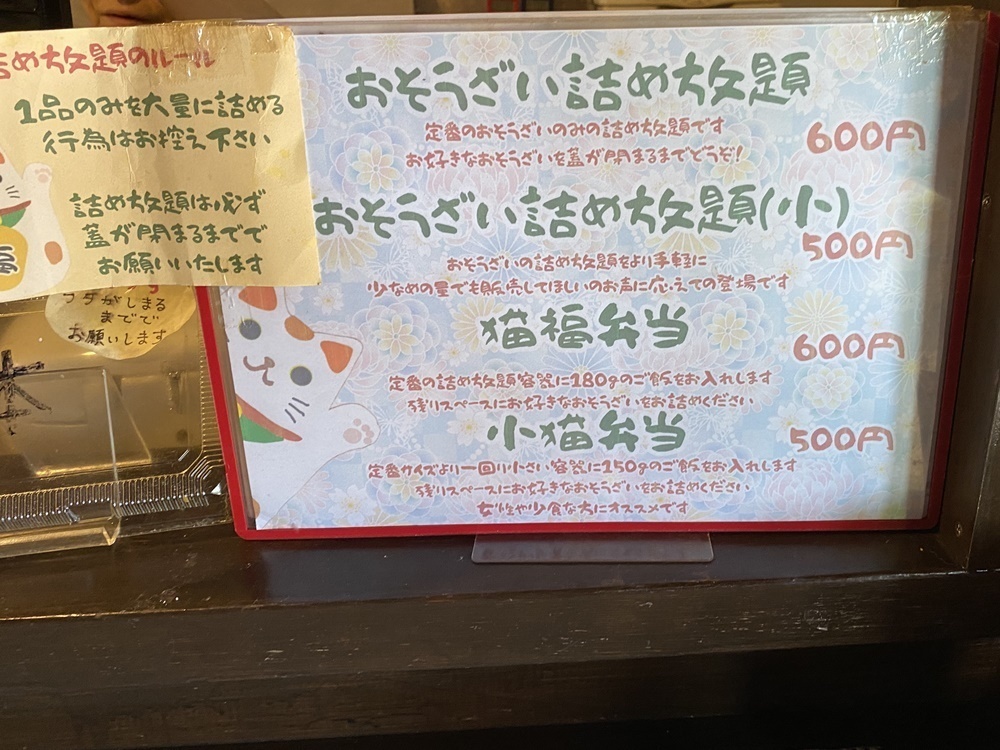 詰め放題のルール
1品のみを大量に詰める
行為はお控え下さい
詰め放題は必ず
蓋が閉まるまでで
お願いいたします
フタがしまる
までで
お願いします
おそうざい詰め放題
定番のおそうざいのみの詰め放題です
お好きなおそうざいを蓋が閉まるまでどうぞ!
600円
おそうざい詰め放題(小)
500円
おそうざいの詰め放題をより手軽に
少なめの量でも販売してほしいのお声に応えての登場です
猫福弁当
600円
定番の詰め放題容器に180gのご飯をお入れします
残りスペースにお好きなおそうざいをお詰めください
小猫弁当
500円
定番サイズより一回り小さい容器に150gのご飯をお入れします
残りスペースにお好きなおそうざいをお詰めください
女性や少食な方にオススメです